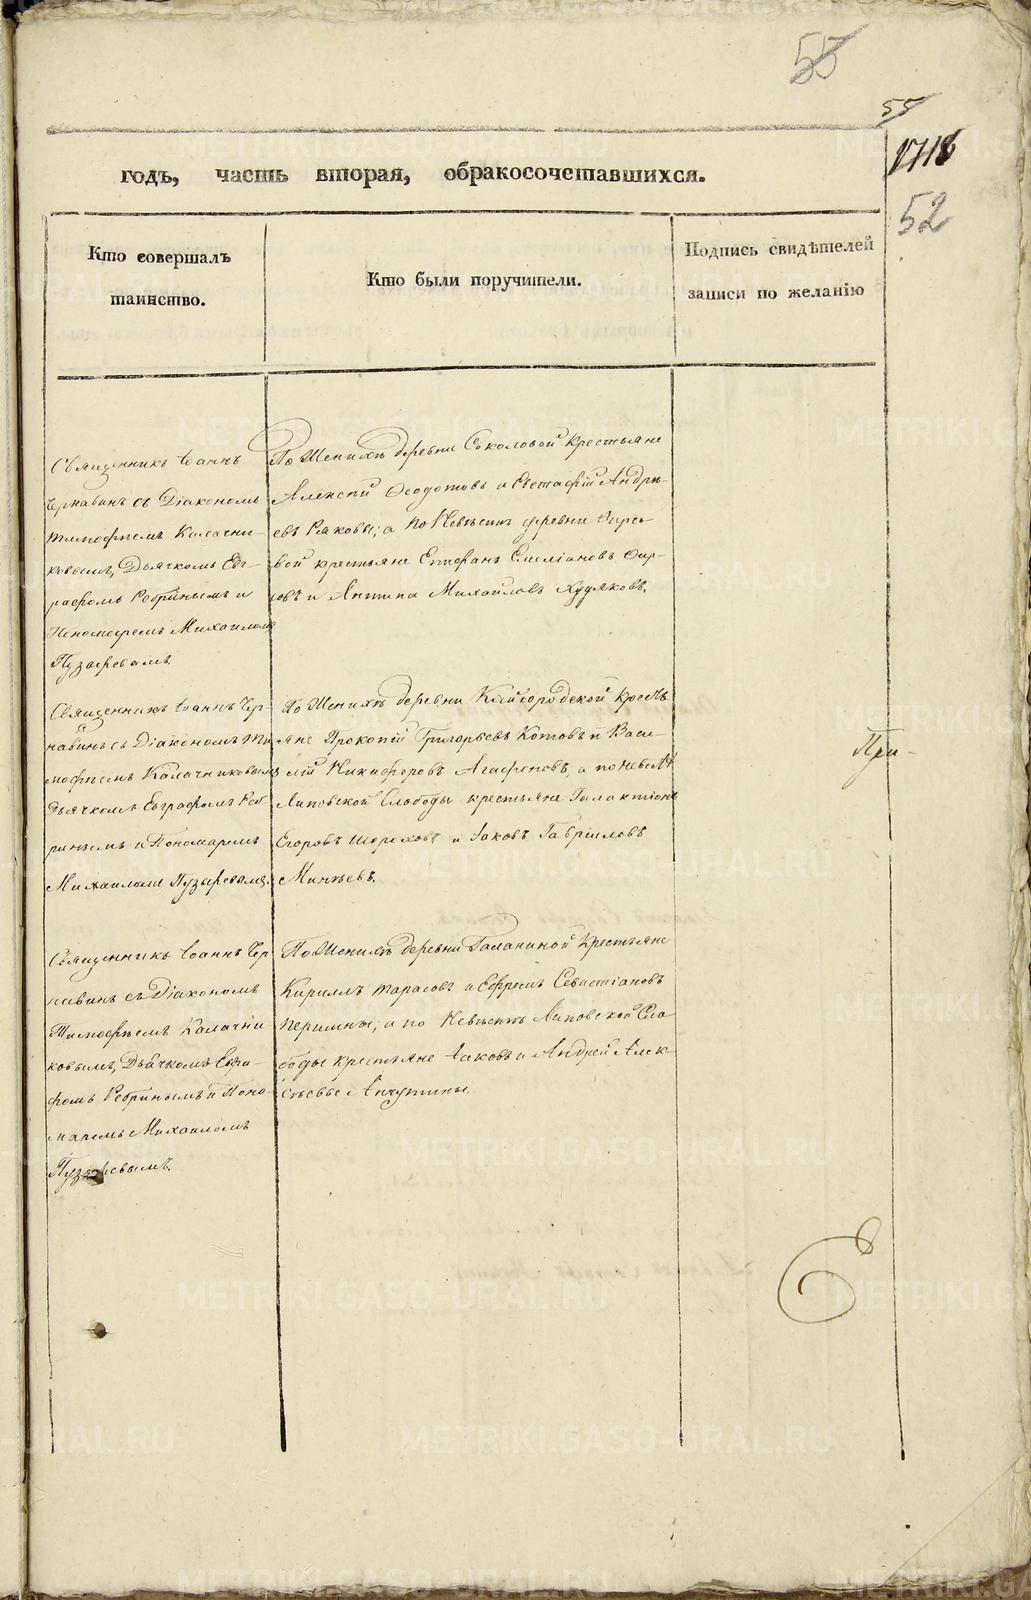 55
55
1718
52
годъ, часть вторая, обракосочетавшихся.
Кто совершалъ
таинство.
Кто были поручители.
Подпись свидѣтелей
записи по желанію
Священникъ Іоаннъ
Чернавинъ съ Діакономъ
Тимофѣемъ Калачни-
ковымъ, Дьячкомъ Ев-
графомъ Ребринымъ и
Пономаремъ Михаиломъ
Пузыревымъ.
По Женихѣ деревни Соколовой крестьяне
Алексѣй Ѳеодотовъ и Евстафій Андрѣ-
евъ Раковы; а по Невѣстѣ деревни Фирсо-
вой крестьяне Епифанъ Емеліановъ Фир-
совъ и Антипа Михайловъ Худяковъ.
Священникъ Іоаннъ Чер-
навинъ съ Діакономъ Ти
мофѣемъ Калачниковымъ
Дьячкомъ Евграфомъ Реб
ринымъ и Пономаремъ
Михаиломъ Пузыревымъ.
По Женихѣ деревни Кайгородской крестъ
яне Прокопій Григорьевъ Котовъ и Васи
лій Никифоровъ Агафоновъ, а по невѣстѣ
Липовской Слободы крестьяне Галактіонъ
Егоровъ Шороховъ и Іаковъ Гавріиловъ
Минѣевъ.
Священникъ Іоаннъ Чер
навинъ съ Діакономъ
Тимофѣемъ Калачни
ковымъ, Дьячкомъ Евгра-
фомъ Ребринымъ и Поно-
маремъ Михаиломъ
Пузыревымъ.
По Женихѣ деревни Галаниной Крестьяне
Кириллъ Тарасовъ и Ефремъ Севастіановъ
Перимны; а по Невѣстѣ Липовской Сло
боды крестьяне Іаковъ и Андрей Алек-
сѣевы Анчутины.
При-
METRIKI.GASO-URAL.RU